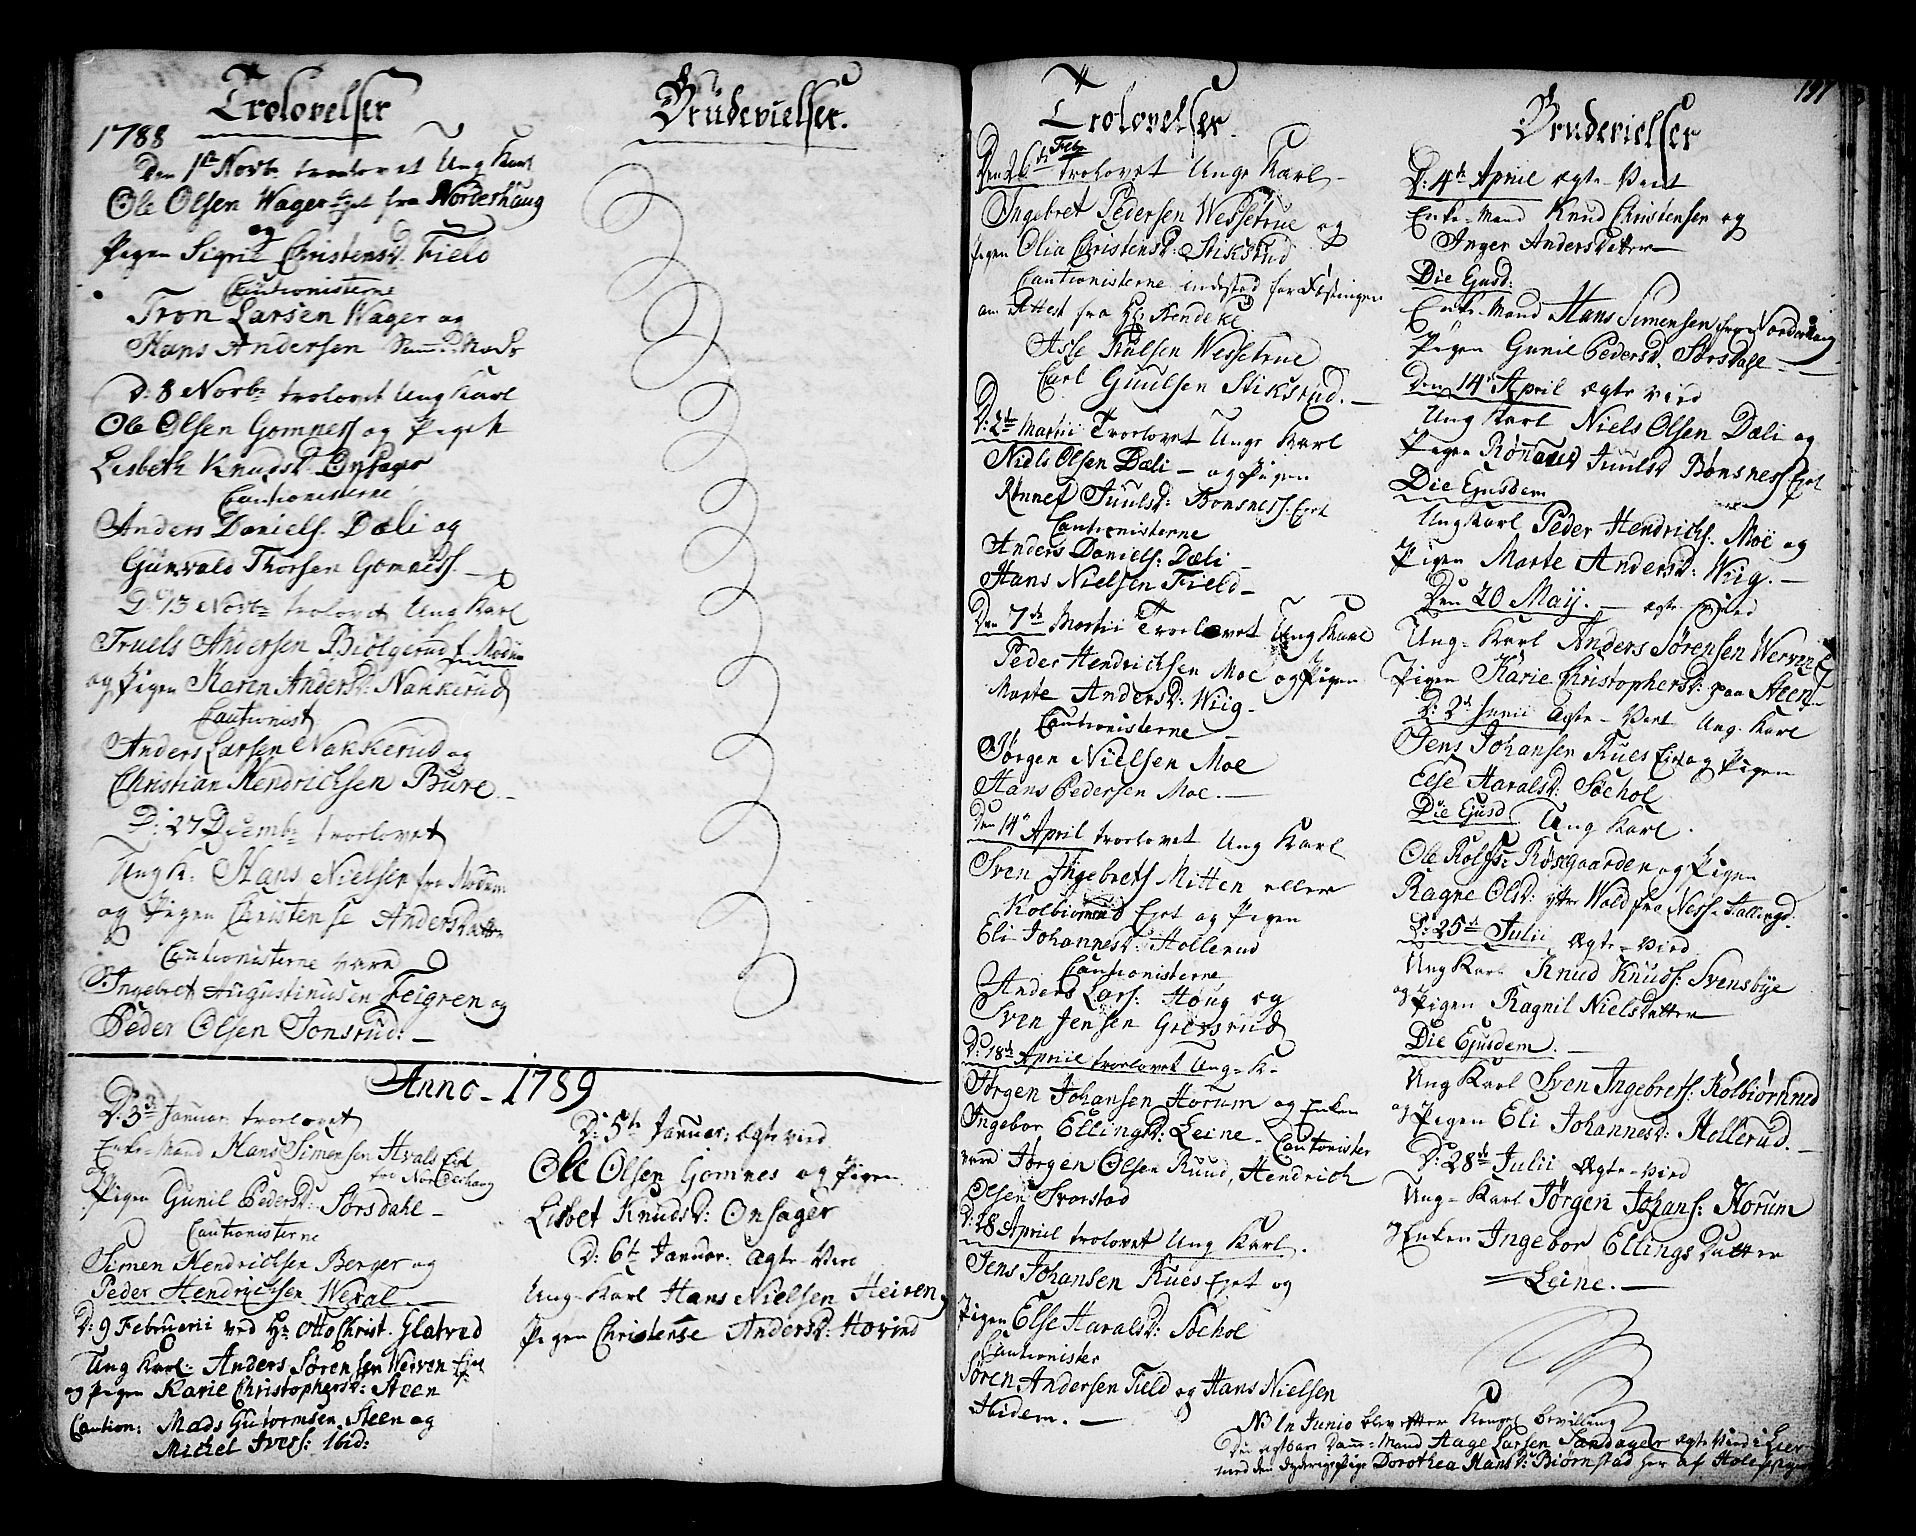 Trolovelser
1788
Den 1te Novbr trolovet Ung Karl
Ole Olsen Wager Ejet fra Norderhaug
og
Pigen Sigrie Christensd: Field
Cautionisterne
Tron Larsen Wager og
Hans Andersen
D: 8 Novbr trolovet Ung Karl
Ole Olsen Gomness og Pigen
Lisbeth Knudsd: Onsager
Cautionisterne
Anders Daniels. Dæli og
Gunvald Thorsen Gomness.
D: 15 Novbr trolovet Ung Karl
Truels Andersen Biølgerud f. Modum
og Pigen Karen Andersd: Nakkerud
Cautionist
Anders Larsen Nakkerud og
Christian Hendrichsen Bure.
D: 27 Decembr troelovet
Ung K: Hans Nielsen fra Modum
og Pigen Christense Andersdatter
Cautionisterne vare
Ingebret Augustinusen Feigren og
Peder Olsen Jonsrud:
Brüdevielser.
Anno 1789
D: 3die Januar: trolovet
Enke-Mand Hans Simensen Hvals Eiet
fra Norderhaug
Pigen Gunil Pedersd: Sørsdahl
Cautionisterne
Simen Hendrichsen Berger og
Peder Hendrichsen Wexal
D: 9 Februarii ved Hr Otto Christ. Glatved
Ung Karl: Anders Sørensen Werven Ejet
og Pigen Karie Christophersd: Steen
Caution: Mads Gutormsen Steen og
Michel Ivers: ibid:
D: 5te Januar: ægteviet
Ole Olsen Gomnes og Pigen
Lisbet Knudsd: Onsager
D: 6te Januar: Ægte Viet
Ung-Karl Hans Nielsen Heiren og
Pigen Christense Andersd: Hovind
Trolovelser.
Den 26de Febr trolovet Unge Karl
Ingebret Pedersen Wessetrue og
Pigen Olia Christensd: Stiksrud
Cautionisterne indestod for
om Attest fra Hr Hendeke
Asse Paulsen Wessetrue
Carl Guulsen Stiksrud.
D: 2de Martii Troelovet Unge Karl
Niels Olsen Dæli og Pigen
Rønnef Juulsd: Bonsness Ejet
Cautionisterne
Anders Daniels: Dæli
Hans Nielsen Field
Den 7de Martii Troelovet Ung Karl
Peder Hendrichsen Moe og Pigen
Marte Andersd: Wiig
Cautionisterne
Jørgen Nielsen Moe
Hans Pedersen Moe.
Den 14de April troelovet Ung Karl
Sven Ingebrets Mitten eller
Kolbiørnrud Ejet og Pigen
Eli Johannesd: Hollerud
Cautionisterne
Anders Lars: Houg og
Sven Jensen Grøsrud
D: 18de Apriil troelovet Ung-K.
Jørgen Johansen Horum og Enken
Ingebor Ellingsd: Leine. Cautonister
vare Jørgen Olsen Ruud, Hendrich
Olsen Svarstad
D: 18 Apriil trolovet Ung Karl.
Jens Johansen Rues Ejet og
Pigen Else Haralsd: Sochol
Cautionister
Søren Andersen Field og Hans Nielsen
Ibidem.
197
Brudevielser
D: 4de Apriil ægte-Viet
Enke-Mand Knud Christensen og
Inger Andersdatter
Die Ejusd:
Enke-Mand Hans Simensen fra Norderhaug
Pigen Gunil Pedersd. Sørsdahl
Den 14de April ægte vied
Ung Karl Niels Olsen Dæli og
Pigen Rønnau Juulsd Bønsness Ejet
Die Ejusdem
Ung Karl Peder Hendrichs. Moe og
Pigen Marte Andersd: Wiig.
Den 20 Maij. ægte Vied
Ung-Karl Anders Sørensen Werven
Pigen Karie Christophersd: paa Steen
D: 2de Junii Ægte-Viet Ung Karl
Jens Johansen Rues Ejet og Pigen
Else Haralsd: Sochol
Die Ejusd Ung Karl.
Ole Rolfs: Røsegaarden og Pigen
Ragne Olsd: ytre Wold fra Ness Hallingd.
D: 25de Julii Ægte-vied
Ung Karl Knud Knuds: Svensbye
og Pigen Ragnil Nielsdatter
Die Ejusdem.
Ung Karl Sven Ingebrets: Kolbiørnrud
og Pigen Eli Johannesd: Hollerud.
D: 28de Julii Ægte-Vied
Ung-Karl Jørgen Johans: Horum
Enken Ingebor Ellings Datter
Leine.
NB In Junio blev efter Kongel bevilling
Dan-Mand Aage Larsen Sandager ægte Vied i Lier
med den dyderige Pige Dorothea Hansd: Biørnstad her af Hole